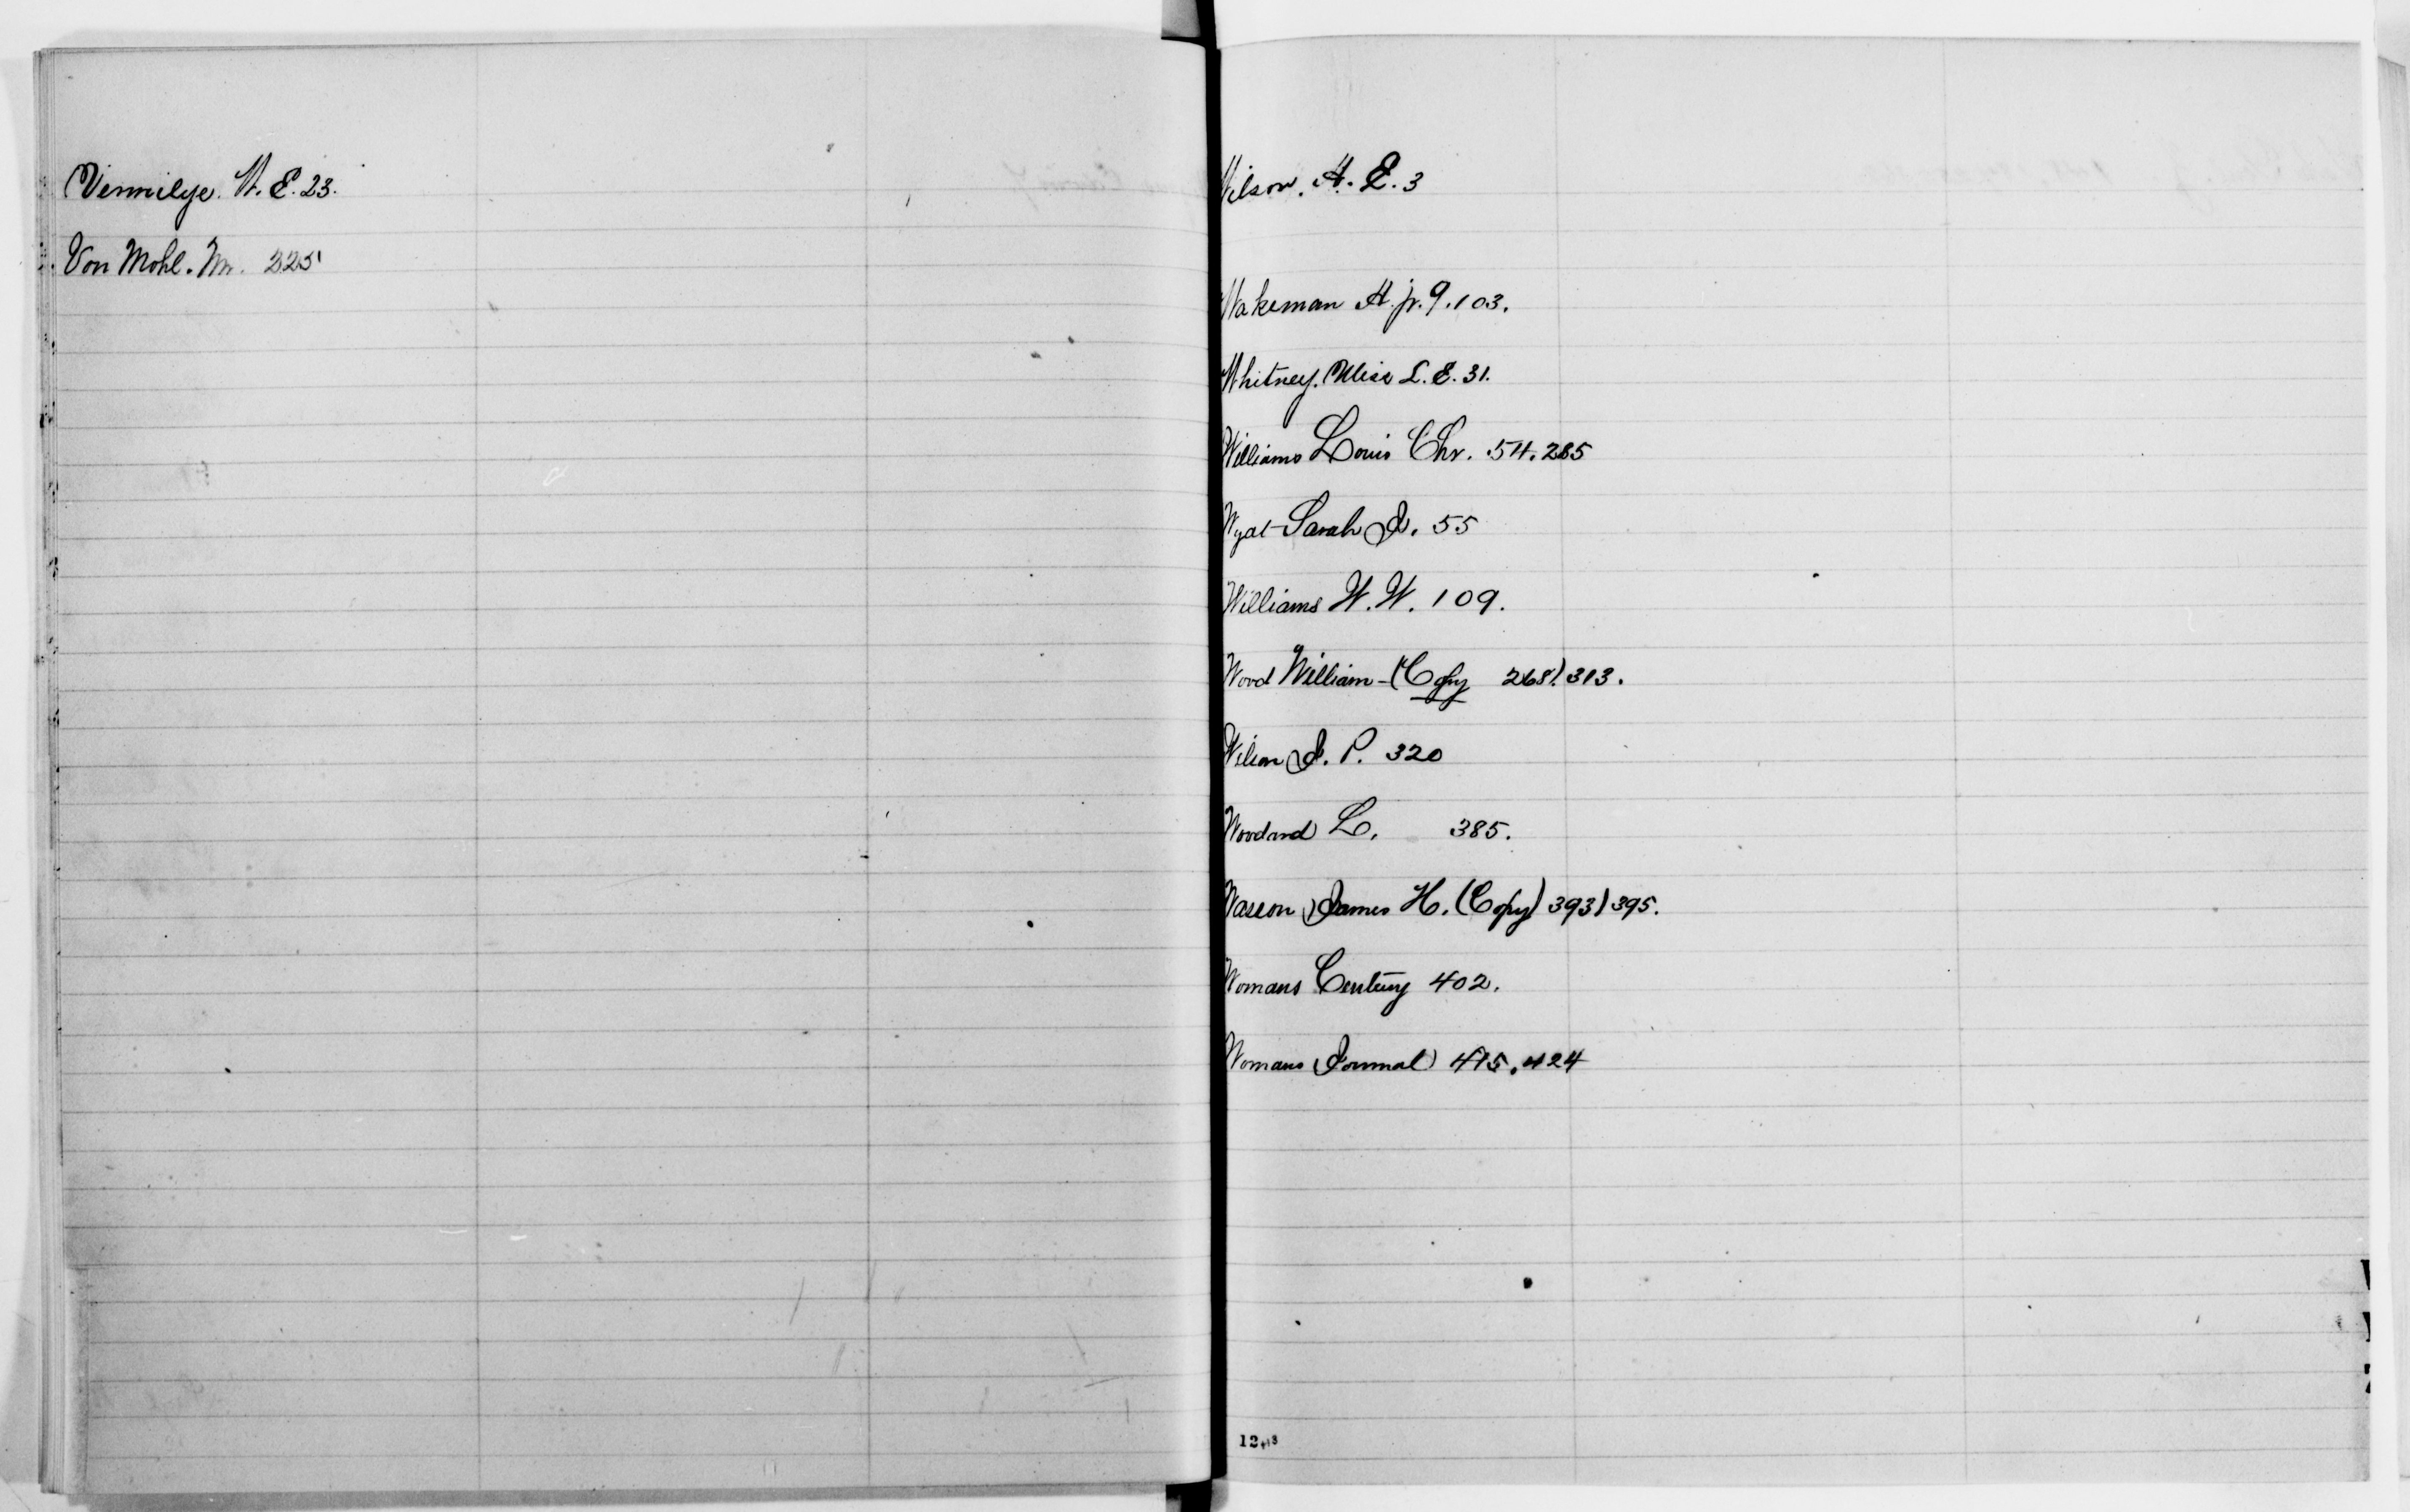 Vermilye. W. E. 23.
Von Mohl. Mr. 225
Wilson. A. E. 3
Wakeman A. jr. 9. 103.
Whitney. Miss L. E. 31.
Williams Louis Chr. 54. 285
Wyat Sarah J. 55
Williams W. W. 109.
Wood William - (Copy 268). 313.
Wilson J. P. 320
Woodard L. 385.
Wascon James H. (Copy) 393) 395.
Womans Century 402.
Womans Journal 415. 424